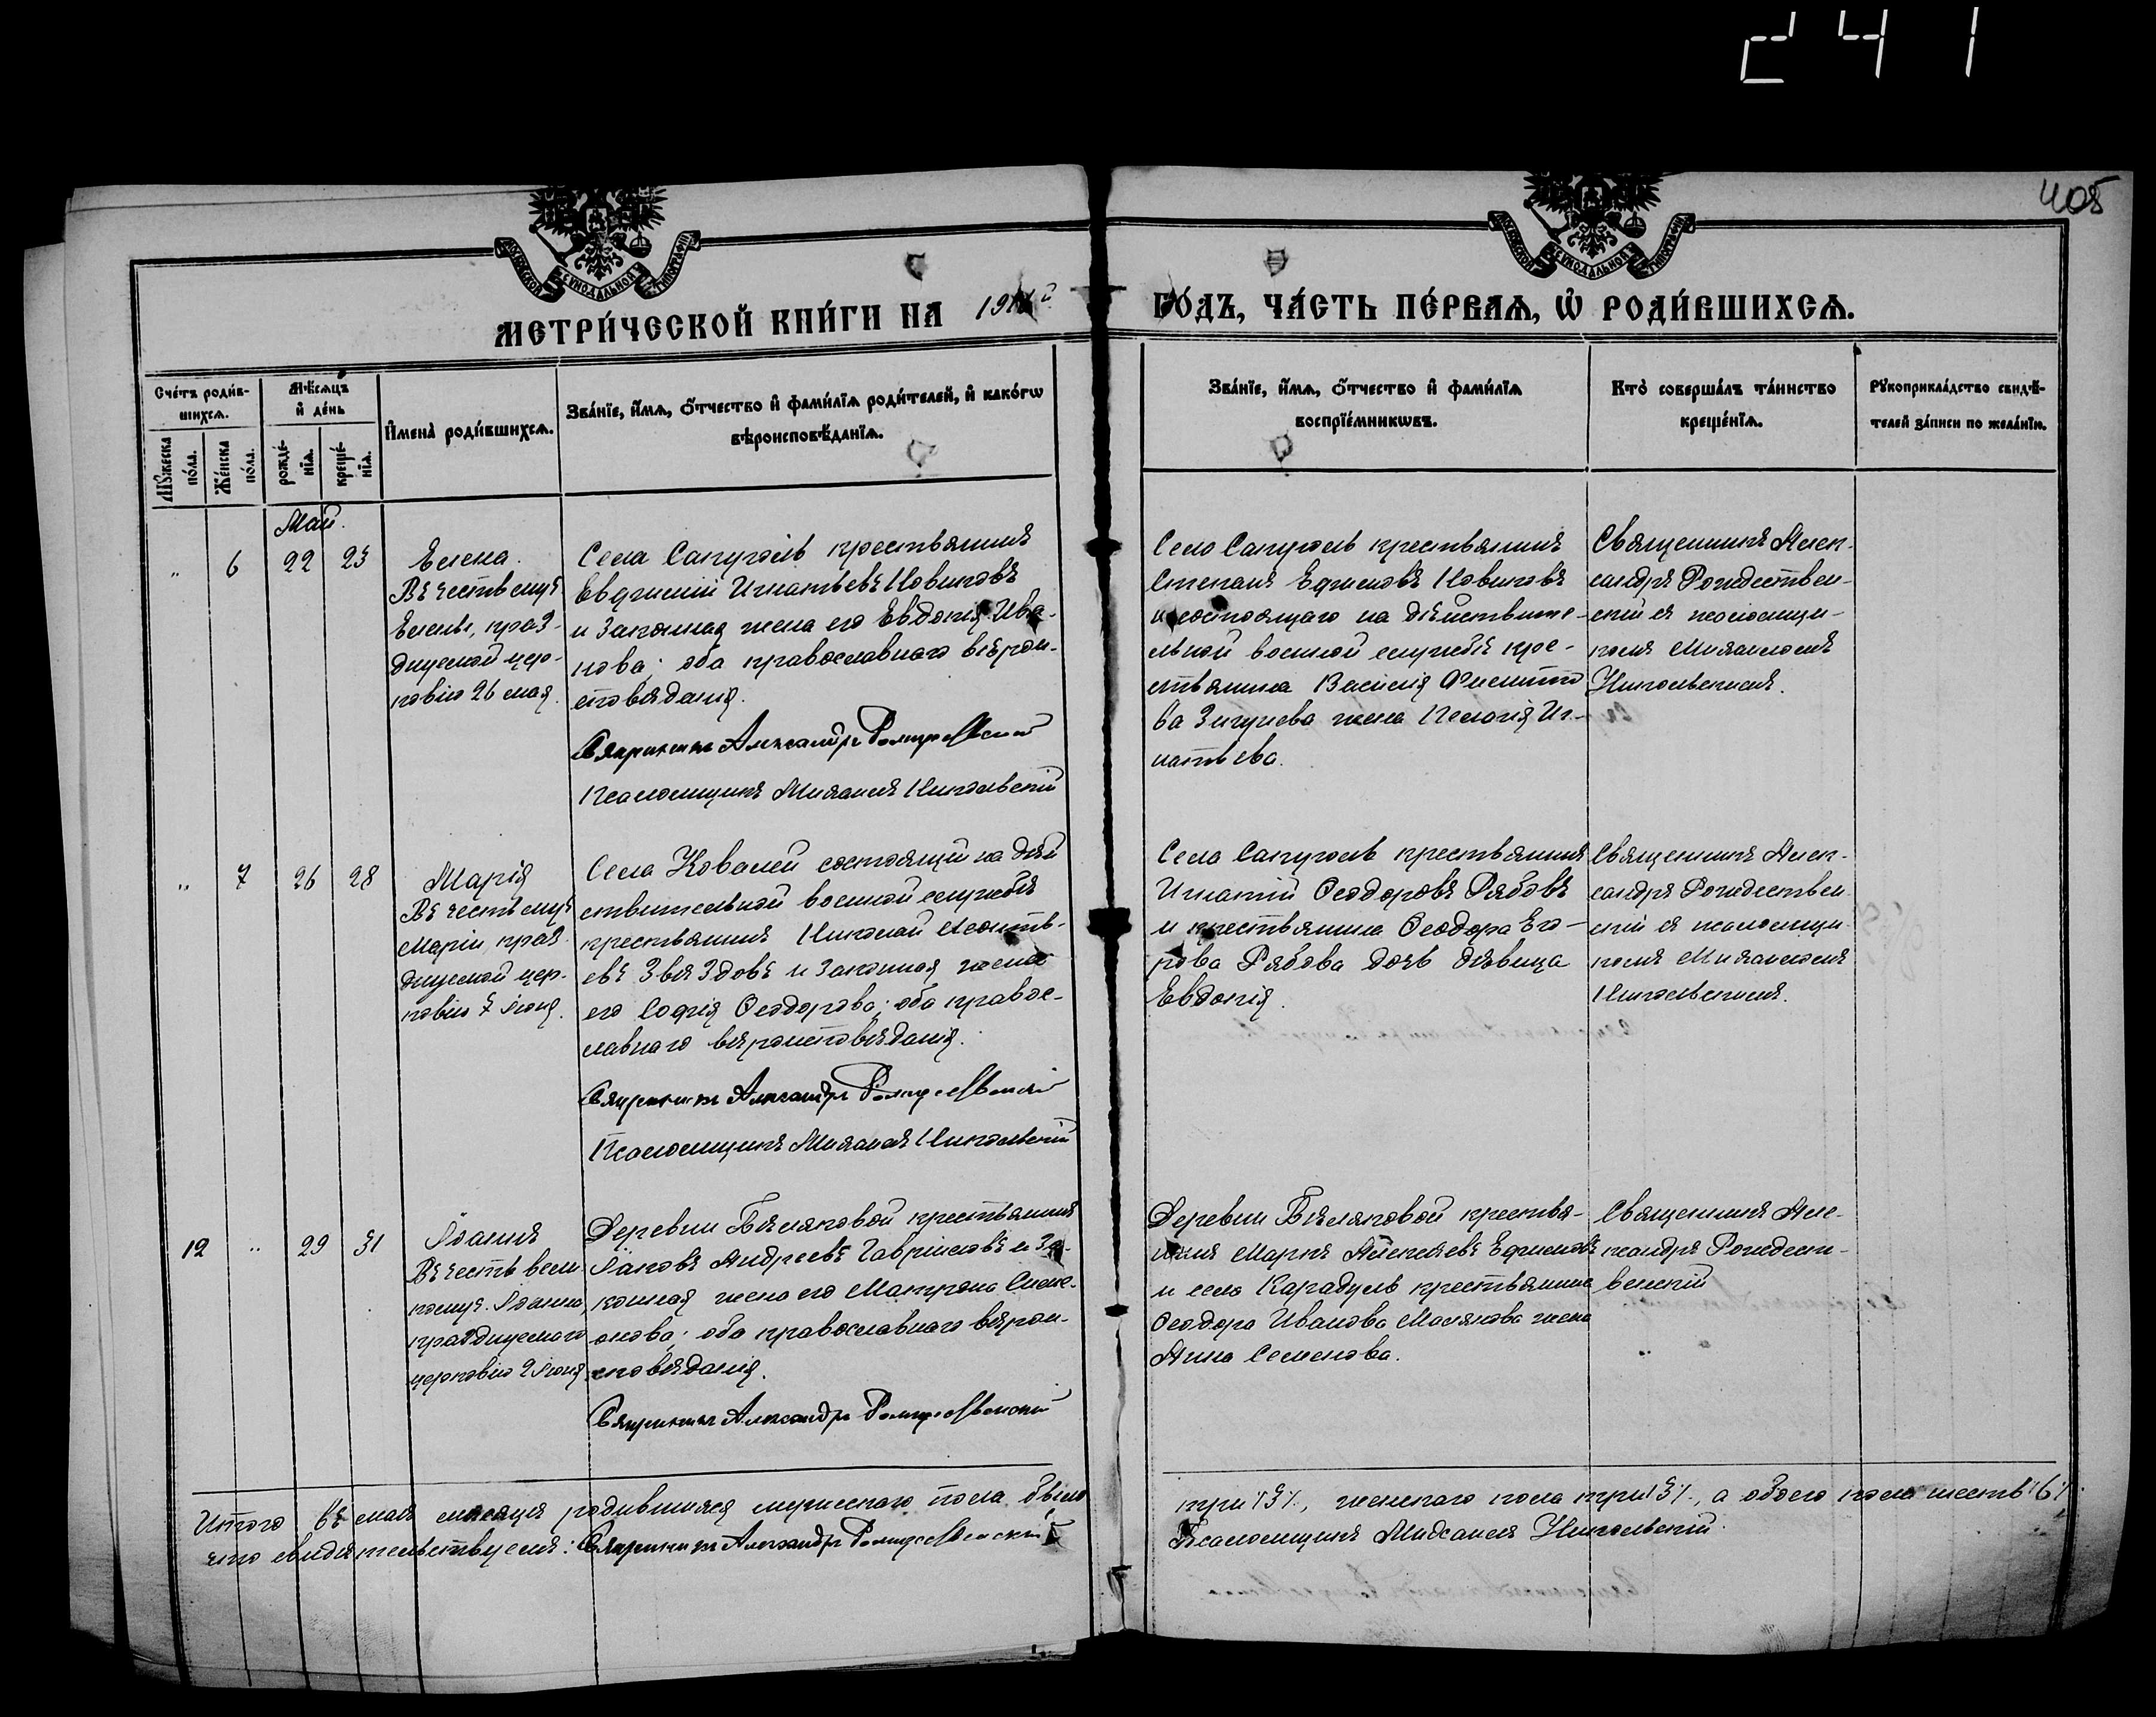 241
405
МОСКОВСКОЙ СѴНОДАЛЬНОЙ ТИПОГРАФІИ
МОСКОВСКОЙ СѴНОДАЛЬНОЙ ТИПОГРАФІИ
МЕТРИ́ЧЕСКОЙ КНИ́ГИ НА 191
ГО́ДЪ, ЧА́СТЬ ПЕ́РВАѦ, Ѡ҆ РОДИ́ВШИХСѦ.
Сче́тъ роди́в-
шихсѧ.
Мѣ́сѧцъ
и҆ де́нь
Мꙋ́жеска
по́ла.
Же́нска
по́ла.
рожде́-
нїѧ.
креще́-
нїѧ.
И҆мена̀ роди́вшихсѧ.
Зва́нїе, и҆́мѧ, ѻ҆́тчество и҆ фами́лїѧ роди́телей, и҆ како́гѡ
вѣроисповѣ́данїѧ.
Зва́нїе, и҆́мѧ, ѻ҆́тчество и҆ фами́лїѧ
воспрїе́мникѡвъ.
Кто̀ соверша́лъ та́инство
креще́нїѧ.
Рꙋкоприкла́дство свидѣ́-
телей за́писи по жела́нїю.
Май.
" 6 22 23
Елена.
Въ честь муч.
Елены, праз-
днуемой цер-
ковію 26 мая.
Села Сапуголь крестьянинъ
Евфимій Игнатьевъ Новиковъ
и законная жена его Евдокія Ива-
нова; оба православнаго вѣрои-
сповѣданія.
Священникъ Александръ Рождественскій
Псаломщикъ Михаилъ Никольскій
Села Сапуголь крестьянинъ
Степанъ Ефимовъ Новиковъ
и состоящаго на дѣйствите-
льной военной службѣ кре-
стьянина Василія Филиппо
ва Зигунова жена Пелагія Иг-
натьева.
Священникъ Алек-
сандръ Рождествен-
скій съ псаломщи-
комъ Михаиломъ
Никольскимъ.
" 7 26 28
Марія
Въ честь муч.
Маріи, праз-
днуемой цер-
ковію 7 іюня.
Села Ковалей состоящій на дѣй
ствительной военной службѣ
крестьянинъ Николай Леонть-
евъ Звѣздовъ и законная жена
его Софія Ѳеодорова; оба правос-
лавнаго вѣроисповѣданія.
Священникъ Александръ Рождественскій
Псаломщикъ Михаилъ Никольскій
Села Сапуголь крестьянинъ
Игнатій Ѳеодоровъ Рябовъ
и крестьянина Ѳеодора Его-
рова Рябова дочь дѣвица
Евдокія.
Священникъ Алек-
сандръ Рождествен-
скій съ псаломщи-
комъ Михаиломъ
Никольскимъ.
12 " 29 31
Іоаннъ
Въ честь вели-
комуч. Іоанна,
празднуемаго
церковію 2 іюня.
Деревни Бѣляковой крестьянинъ
Іаковъ Андреевъ Гавриловъ и за-
конная жена его Матрона Симе-
онова; оба православнаго вѣрои-
сповѣданія.
Священникъ Александръ Рождественскій
Деревни Бѣляковой крестья-
нинъ Маркъ Алексѣевъ Ефимовъ
и села Карадуль крестьянина
Ѳеодора Иванова Маслякова жена
Анна Семенова.
Священникъ Але-
ксандръ Рождест-
венскій
Итого въ маѣ мѣсяцѣ родившихся мужескаго пола было
три /3/, женскаго пола три /3/, а обоего пола шесть /6/.
что свидѣтельствуемъ: Священникъ Александръ Рождественскій
Псаломщикъ Михаилъ Никольскій.